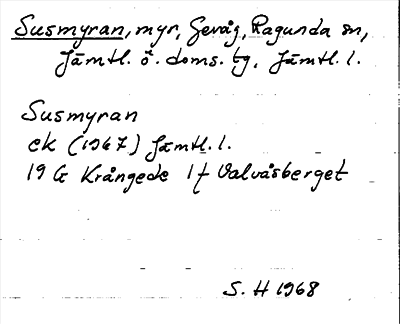 Susmyran, myr, Gevåg, Ragunda sn,
Jämtl. ö. doms. tg, Jämtl. l.
Susmyran
ek (1967) Jämtl. l.
19 G Krångede 1 f Valvåsberget
S. H 1968